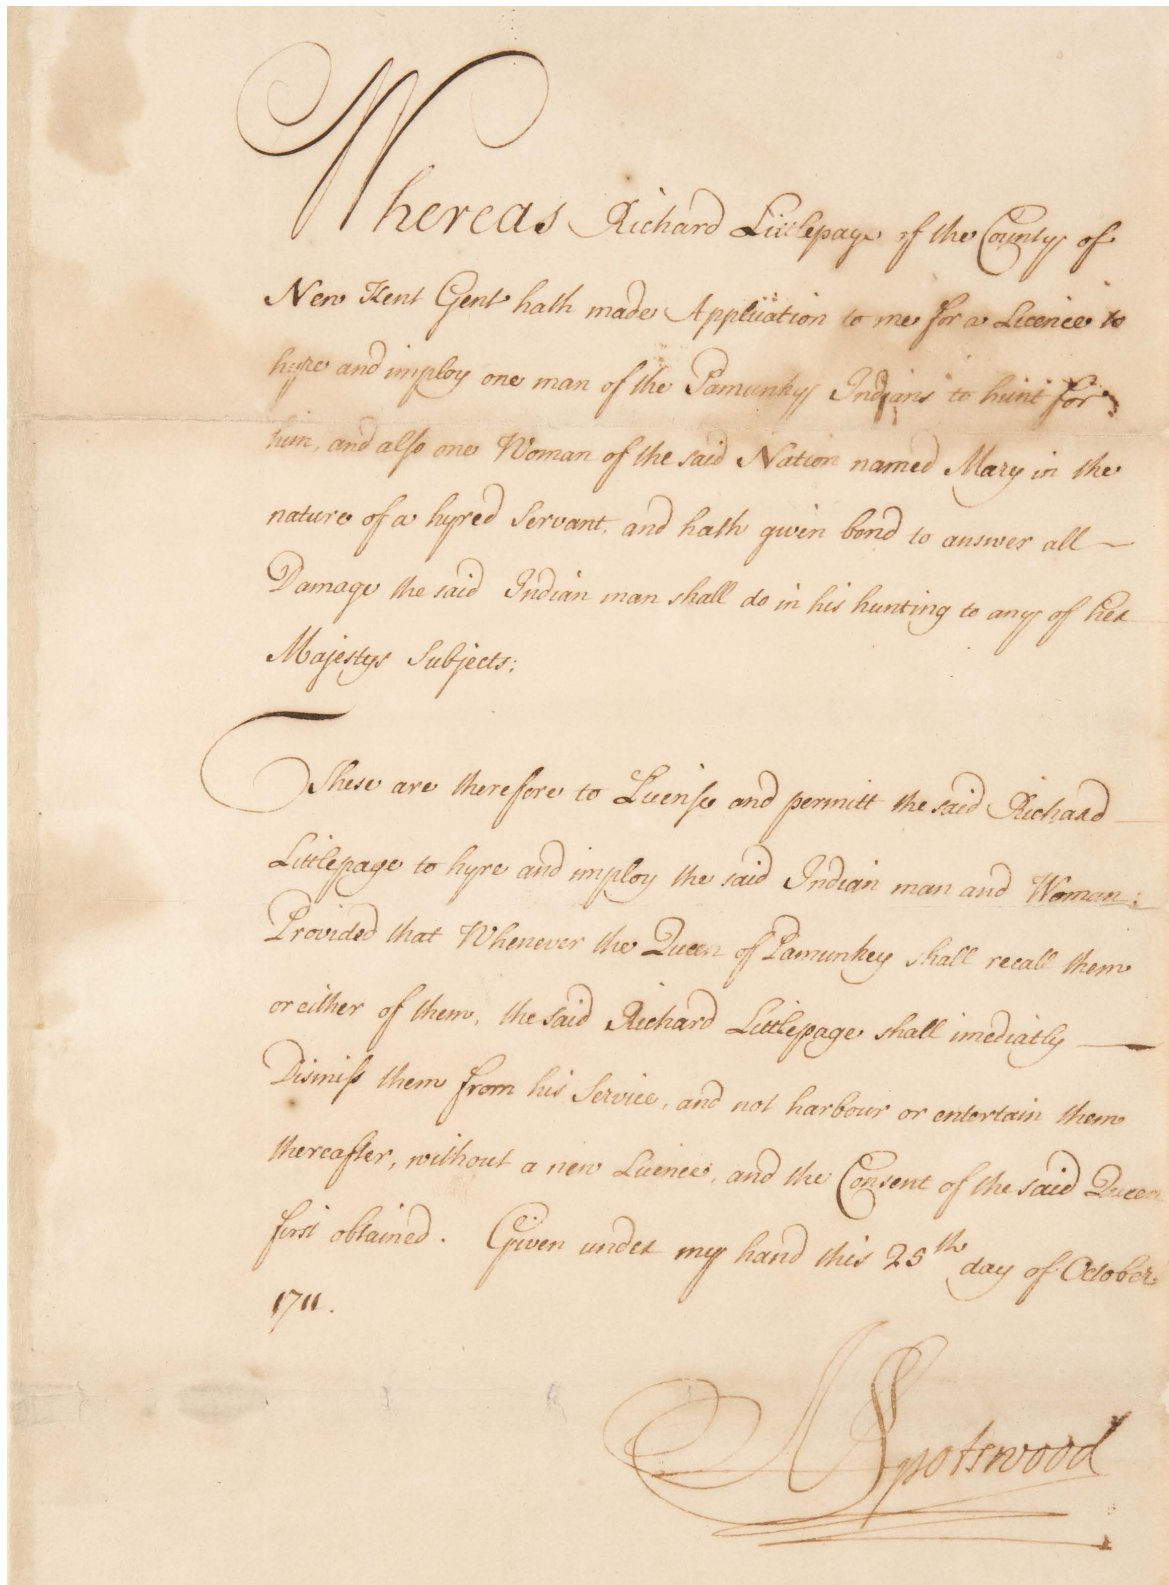 Whereas Richard Littlepage of the County of
New Kent Gent hath made Application to me for a Licence to
hyre and imploy one man of the Pamunky Indians to hunt for
him, and also one Woman of the said Nation named Mary in the
nature of a hyred Servant, and hath given bond to answer all
Damage the said Indian man shall do in his hunting to any of her
Majestys Subjects;
These are therefore to License and permitt the said Richard
Littlepage to hyre and imploy the said Indian man and Woman;
Provided that Whenever the Queen of Pamunkey shall recall them
or either of them, the said Richard Littlepage shall imediatly
Dismiss them from his Service, and not harbour or entertain them
thereafter, without a new Licence, and the Consent of the said Queen
first obtained. Given under my hand this 25th day of October
1711.
A Spotswood